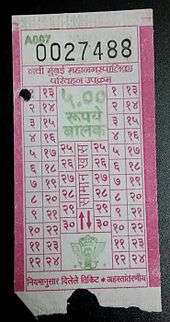 A007
0027488
नवी मुंबई महानगरपालिका
परिवहन उपक्रम
५.००
रुपये
बालक
१ १३ १ १३
२ १४ २ १४
३ १५ ३ १५
४ १६ ४ १६
५ १७ २५ सामान खास २५ ५ १७
६ १८ २६ २६ ६ १८
७ १९ २७ २७ ७ १९
८ २० २८ २८ ८ २०
९ २१ २९ २९ ९ २१
१० २२ ३० ३० १० २२
११ २३ ११ २३
१२ २४ १२ २४
नियमानुसार दिलेले तिकिट * अहस्तांतरणीय